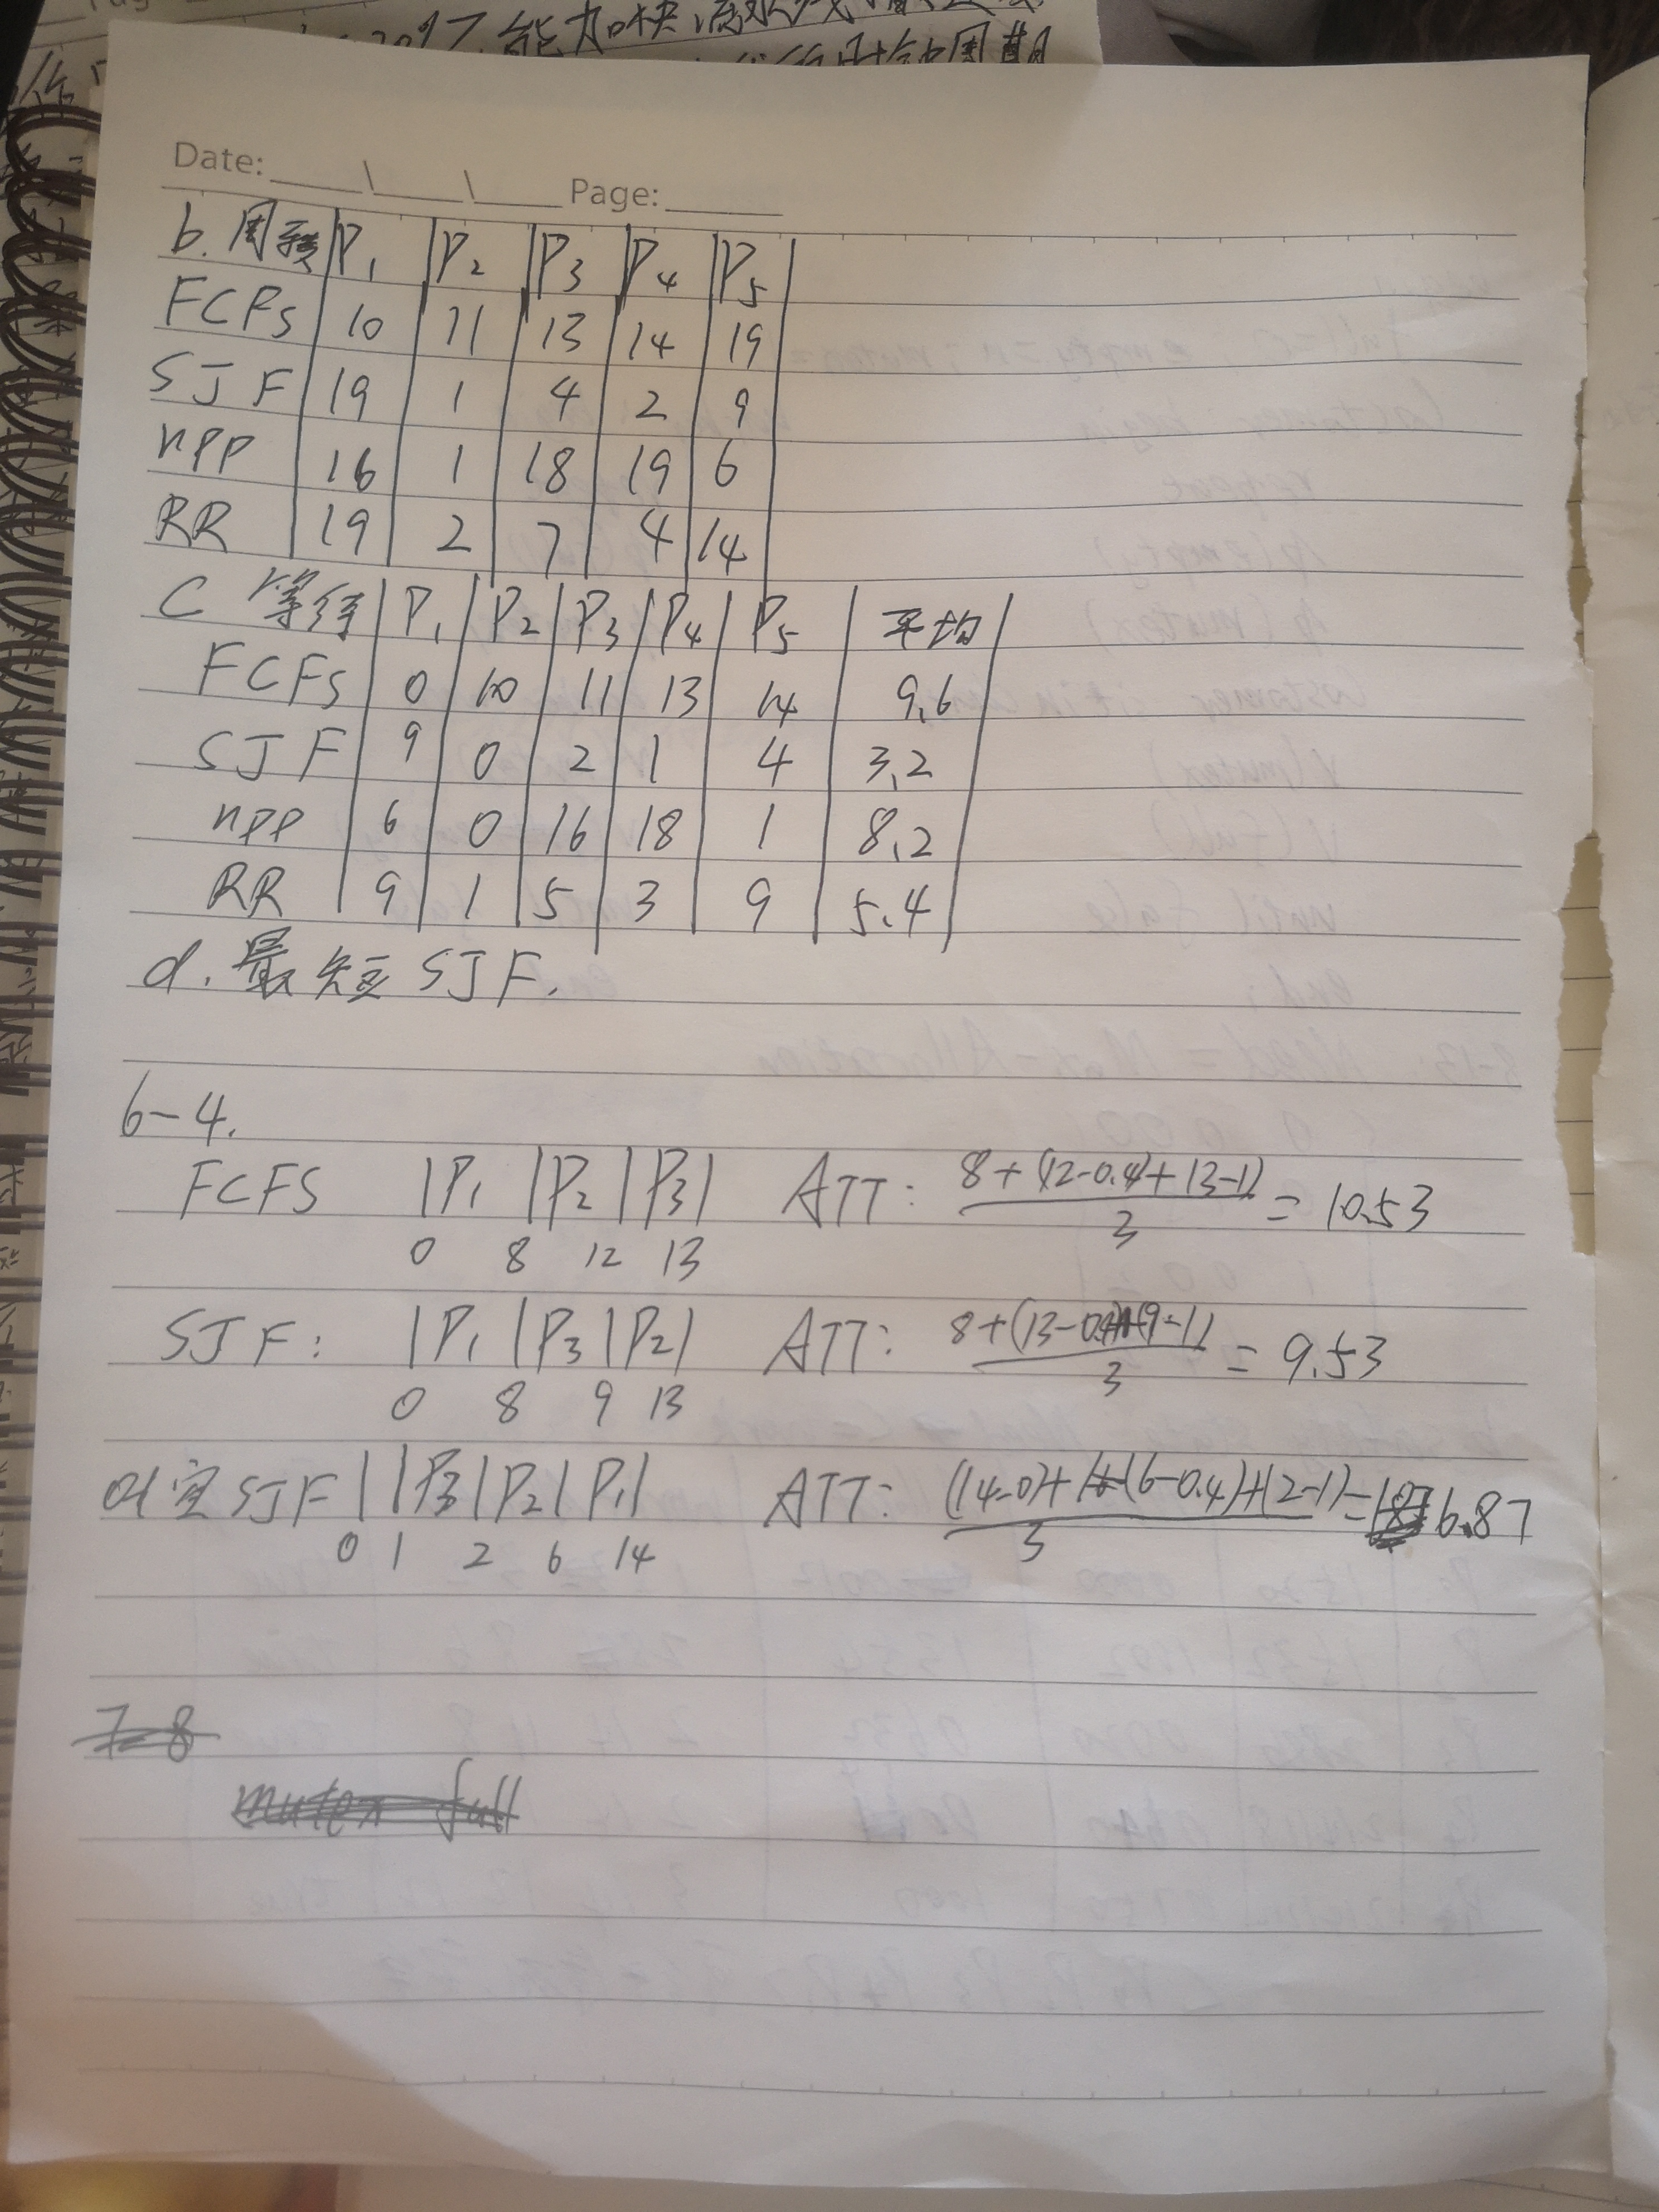 2097.能加快
时钟周期
Date: ____\____\____ Page: ______
b. 周转 P1 P2 P3 P4 P5
FCFS 10 11 13 14 19
SJF 19 1 4 2 9
npp 16 1 18 19 6
RR 19 2 7 4 14
C 等待 P1 P2 P3 P4 P5 平均
FCFS 0 10 11 13 14 9.6
SJF 9 0 2 1 4 3.2
npp 6 0 16 18 1 8.2
RR 9 1 5 3 9 5.4
d. 最短 SJF.
6-4.
FCFS |P1 |P2 |P3| ATT: (8+(12-0.4)+13-1)/3 = 10.53
0 8 12 13
SJF: |P1 |P3 |P2| ATT: (8+(13-0.4)+(9-1))/3 = 9.53
0 8 9 13
SJF | |P3|P2|P1| ATT: ((14-0)+(6-0.4)+(2-1))/3 = 6.87
0 1 2 6 14
7-8
mutex full